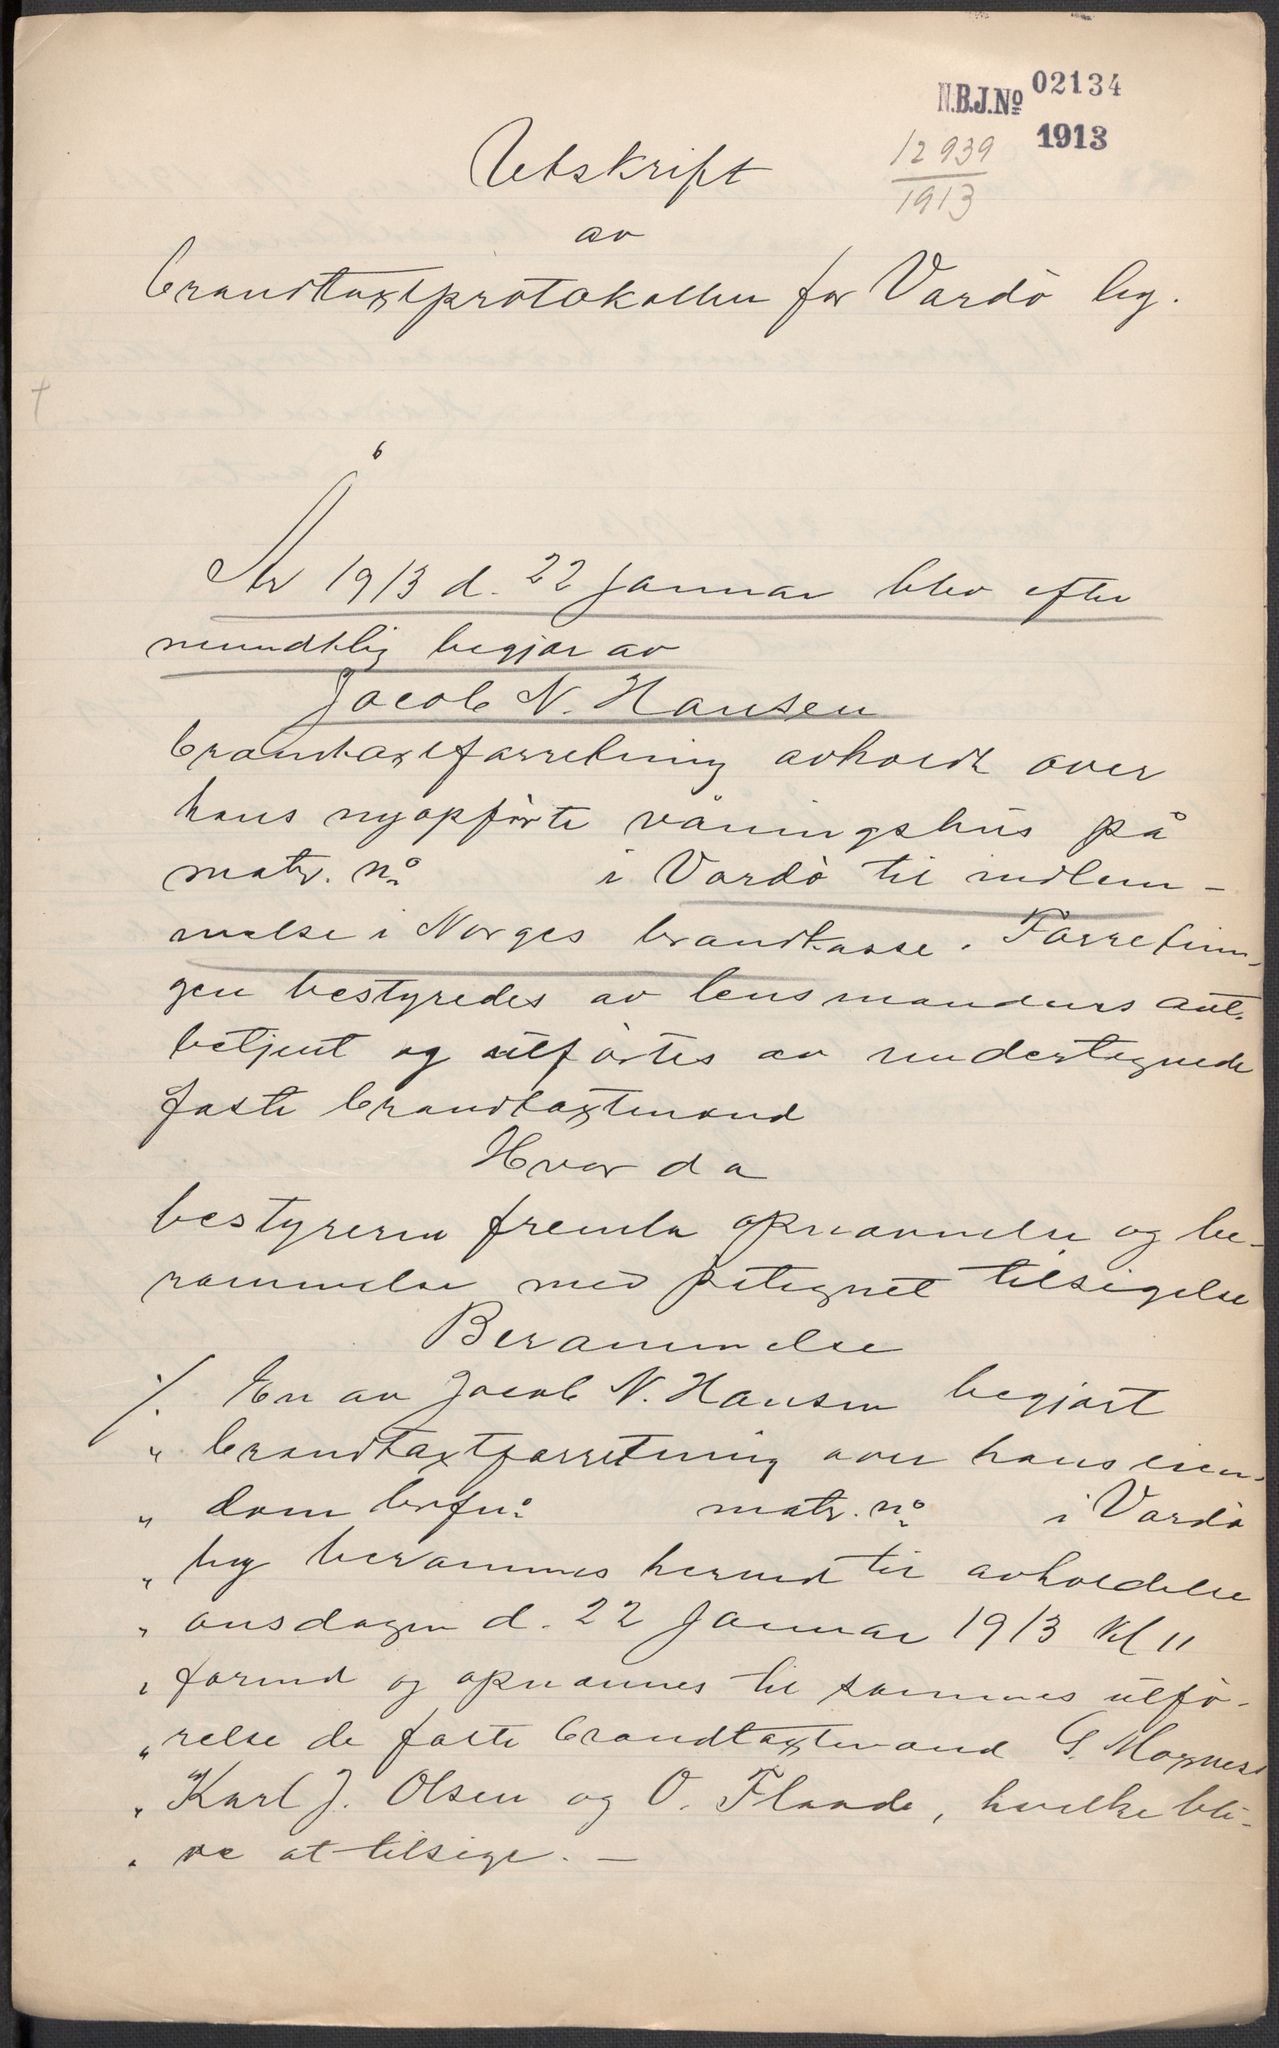 N.B.J.No 02134
1913
12939
1913
Utskrift
av
brandtaxtprotokollen for Vardö by.
År 1913 d. 22 januar blev efter
mundtlig begjær av
Jacob N. Hansen
brandtaxtforretning avholdt over
hans nyopförte våningshus på
matr. no i Vardö til indlem-
melse i Norges brandkasse. Forretnin-
gen bestyredes av lensmandens aut.
betjent og utförtes av undertegnede
faste brandtaxtmænd
Hvor da
bestyreren fremla opnævnelse og be-
rammelse med påtegnet tilsigelse
Berammelse
./. En av Jacob N. Hansen begjært
" brandtaxtforretning over hans eien-
" dom brfno matr. no i Vardö
" by berammes herved til avholdelse
" onsdagen d. 22 januar 1913 kl 11
" formd og opnævnes til sammes utfö-
" relse de faste brandtaxtmænd G. Moxness
" Karl J. Olsen og O. Flaade, hvilke bli-
" ve at tilsige. —